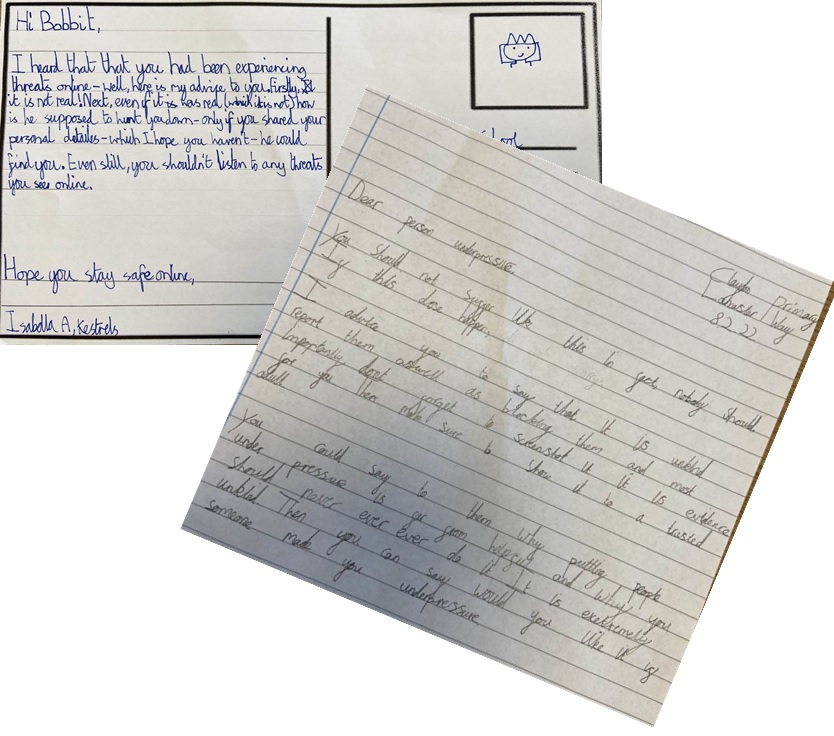 Hi Bobbit,
I heard that that you had been experiencing
threats online - well, here is my advise to you. Firstly,
it is not real! Next, even if it is was real (which it is not) how
is he supposed to hunt you down - only if you shared your
personal detailes - which I hope you haven't - he could
find you. Even still, you shouldn't listen to any threats
you see online.
Hope you stay safe online,
Isabella A, Kestrels
Primary
Way
Dear person underpressure
You should not suger like this In gact, nobody should
Ig this dose happen,
I advice you to say that it is unkind
report them aswell as blocking them and most
Importently dont gorget to screnshot it It is evidence
gor you then make sure to show it to a trusted
adult
You could say to them why putting people
under pressure is gar grom helpgul and why you
should never ever ever do it It is exetremely
unkind Then you can say would you like it ig
someone made you underpressure